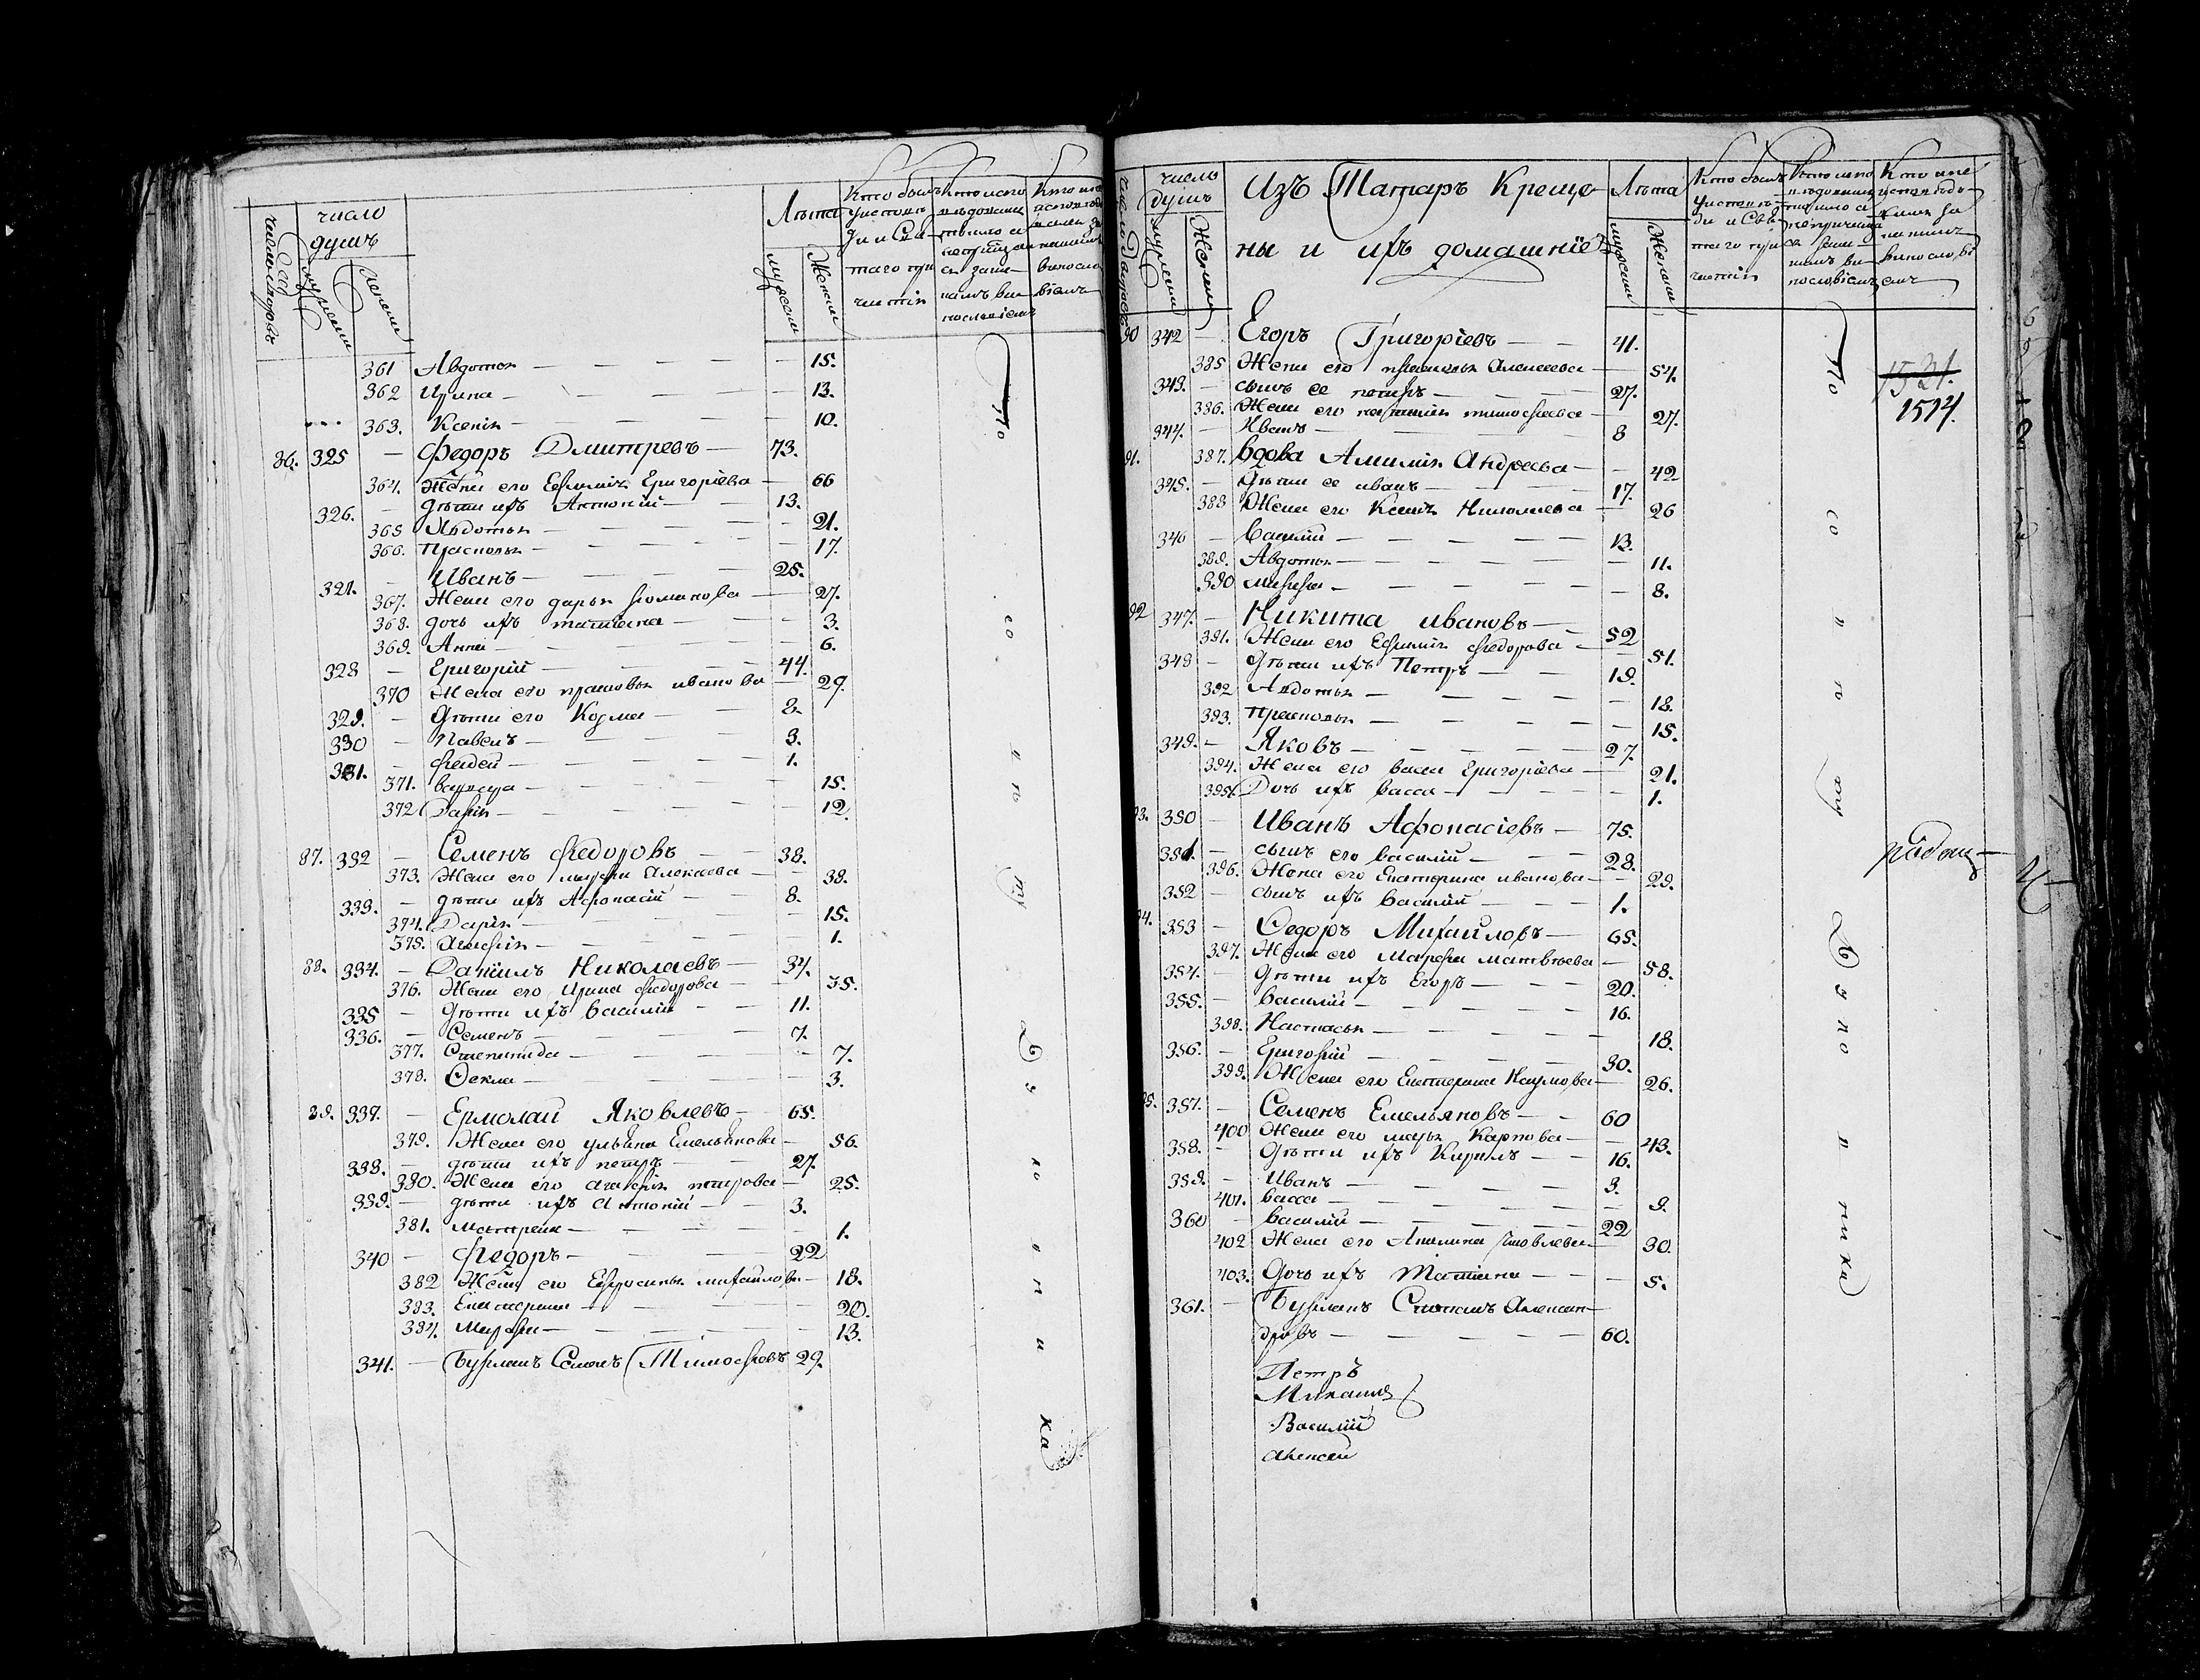 число
душъ
Лѣта
число дворовъ
мужеска
женска
мужеска
женска
361 Авдотья — 15.
362 Ирина — 13.
363. Ксенія — 10.
86. 325 — Федоръ Дмитревъ — 73.
364. Жена его Ефимія Григорiева — 66
326. — дѣти ихъ Антоній — 13.
365 Авдотья — 21.
366. Прасковья — 17.
327. — Иванъ — 25.
367. Жена его дарья романова — 27.
368. дочь ихъ татиана — 3.
369. Анна — 6.
328 — Григорій — 44.
370 Жена его прасковья иванова — 29.
329. — дѣти его Козма — 8.
330 — Павелъ — 3.
331. — Фадей — 1.
371. варвара — 15.
372 Дарія — 12.
87. 332 — Семенъ Федоровъ — 38.
373. Жена его марфа Алексеева — 38.
333. — дѣти ихъ Афонасій — 8.
374. Дарія — 15.
375. Агафія — 1.
88. 334. — Даніилъ Николаевъ — 34.
376. Жена его Ирина федорова — 35.
335 — Дѣти ихъ василій — 11.
336. — Семенъ — 7.
377. Степанида — 7.
378. Ѳекла — 3.
89. 337. — Ермолай Яковлевъ — 65.
379. Жена его ульяна Емельянова — 56.
338. — дѣти ихъ петръ — 27.
380. Жена его агафія — 25.
339. — дѣти ихъ Антоній — 3.
381. матрена — 1.
340 — Федоръ — 22
382 Жена его Ефросинья михайлова — 18.
383. Екатерина — 20.
384. Марфа — 13.
341. — Бурлакъ Семенъ Тимофеевъ 29.
По со п ту Дъ
ка
число
душъ
Изъ Татаръ Креще-
ны и ихъ домашніе
Лѣта
мужеска
женска
90 342 — Егоръ Григоріевъ — 41.
385 Жена его прасковья Алексеева — 54.
343. — сынъ ее петръ — 27.
386. Жена его наталія тимофеева — 27.
344. — Иванъ — 8
91. 387. вдова Акилина Андреева — 42
345. — Дѣти ее иванъ — 17.
388 Жена его Ксенія Николаева — 26
346 — Василій — 13.
389. Авдотья — 11.
390 марфа — 8.
92 347. — Никита ивановъ — 52
391. Жена его Ефимія федорова — 51.
348 — Дѣти ихъ Петръ — 19.
392 Авдотья — 18.
393. Прасковья — 15.
349. — Яковъ — 27.
394. Жена его васса Григорiева — 21.
395. Дочь ихъ васса — 1.
93. 350 — Иванъ Афонасіевъ — 75.
351. — сынъ его василій — 28.
396. Жена его Екатерина иванова — 29.
352 — сынъ ихъ василій — 1.
94. 353 — Ѳедоръ Михайловъ — 65.
397. Жена его Марфа матвѣева — 58.
354. — Дѣти ихъ Егоръ — 20.
355. — Василій — 16.
398. Настасья — 18.
356. — Григорій — 30.
399. Жена его Екатерина Наумова — 26.
95. 357. — Семенъ Емельяновъ — 60
400 Жена его марья Карпова — 43.
358. — Дѣти ихъ Кирилъ — 16.
359. — Иванъ — 3.
401. Васса — 9.
360 — Василій — 22
402 Жена его Акилина Яковлева — 30.
403. Дочь ихъ Татіана — 5.
361. — Бурлакъ Степанъ Алексан-
дровъ — 60.
Петръ
Михаилъ
Василій
Алексей
1521.
1514.